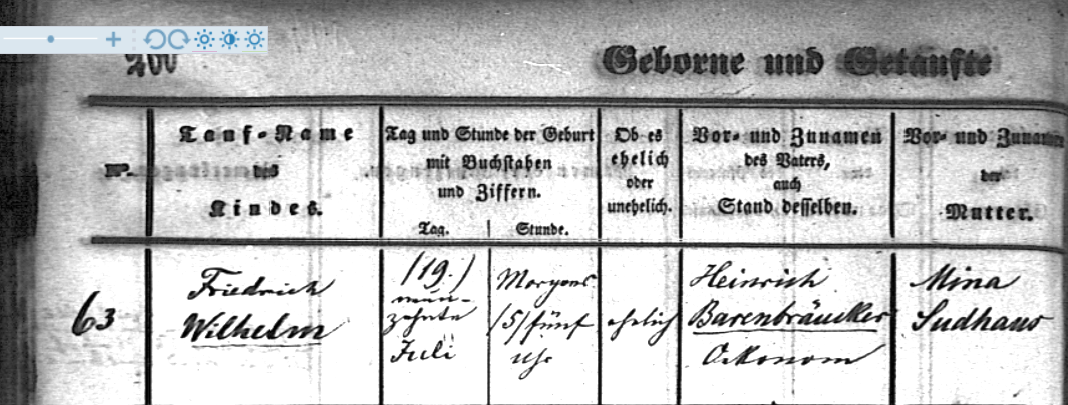 200
Geborne und Getaufte
Nº.
Tauf-Name
des
Kindes.
Tag und Stunde der Geburt
mit Buchstaben
und Ziffern.
Tag.
Stunde.
Ob es
ehelich
oder
unehelich.
Vor- und Zunamen
des Vaters,
auch
Stand desselben.
Vor- und Zunamen
der
Mutter.
63
Friedrich
Wilhelm
(19.)
neun-
zehnte
Juli
Morgens
(5) fünf
Uhr
ehelich
Heinrich
Barenbräucker
Oekonom
Mina
Sudhaus